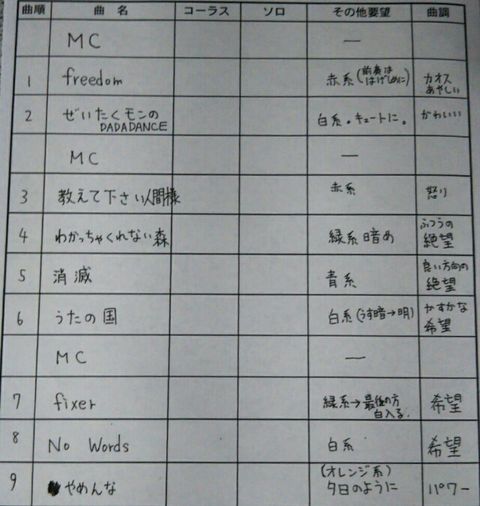 曲順 曲 名 コーラス ソロ その他要望 曲調
MC —
1 freedom 赤系(前奏は はげしめに) カオス あやしい
2 ぜいたくモンの DADADANCE 白系。キュートに。 かわいい
MC —
3 教えて下さい人間様 赤系 怒り
4 わかっちゃくれない森 緑系 暗め ふつうの 絶望
5 消滅 青系 良い方向の 絶望
6 うたの国 白系(うす暗→明) かすかな 希望
MC —
7 fixer 緑系→最後の方 白入る. 希望
8 No Words 白系 希望
9 やめんな (オレンジ系) 夕日のように パワー